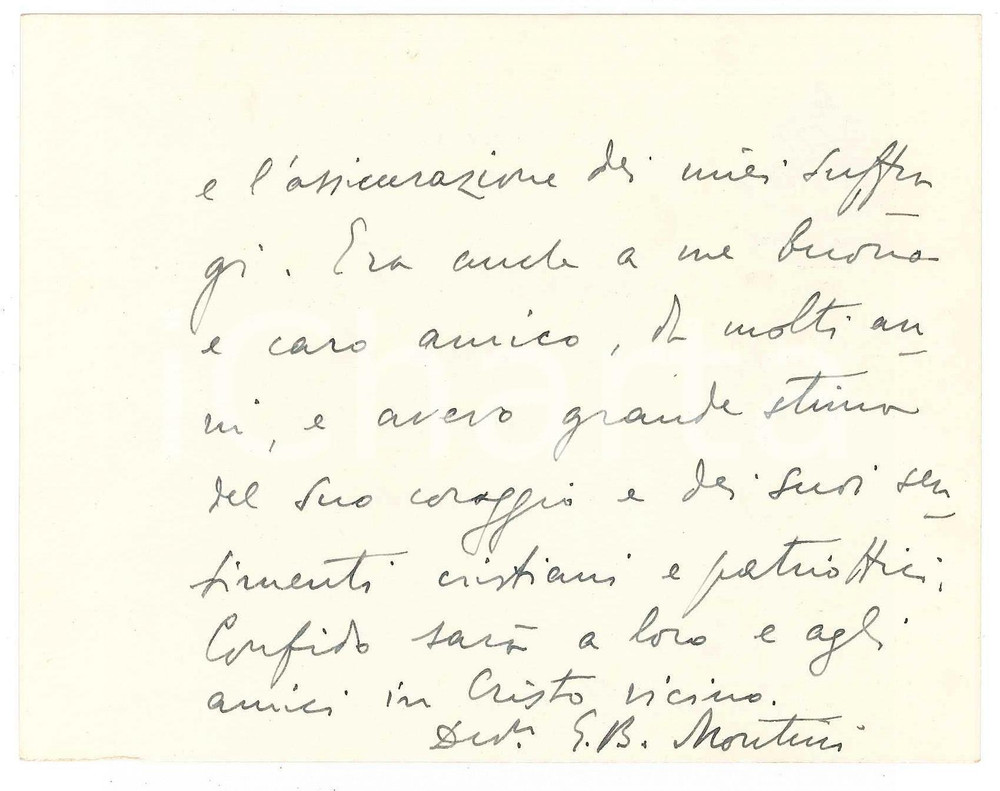 e l'assicurazione dei miei suffra
gi. Era anche a me buono
e caro amico, da molti an
ni, e avevo grande stima
del suo coraggio e dei suoi sen
timenti cristiani e patriottici.
Confido sarà a loro e agli
amici in Cristo vicino.
Dev.mo G.B. Montini
iCharta